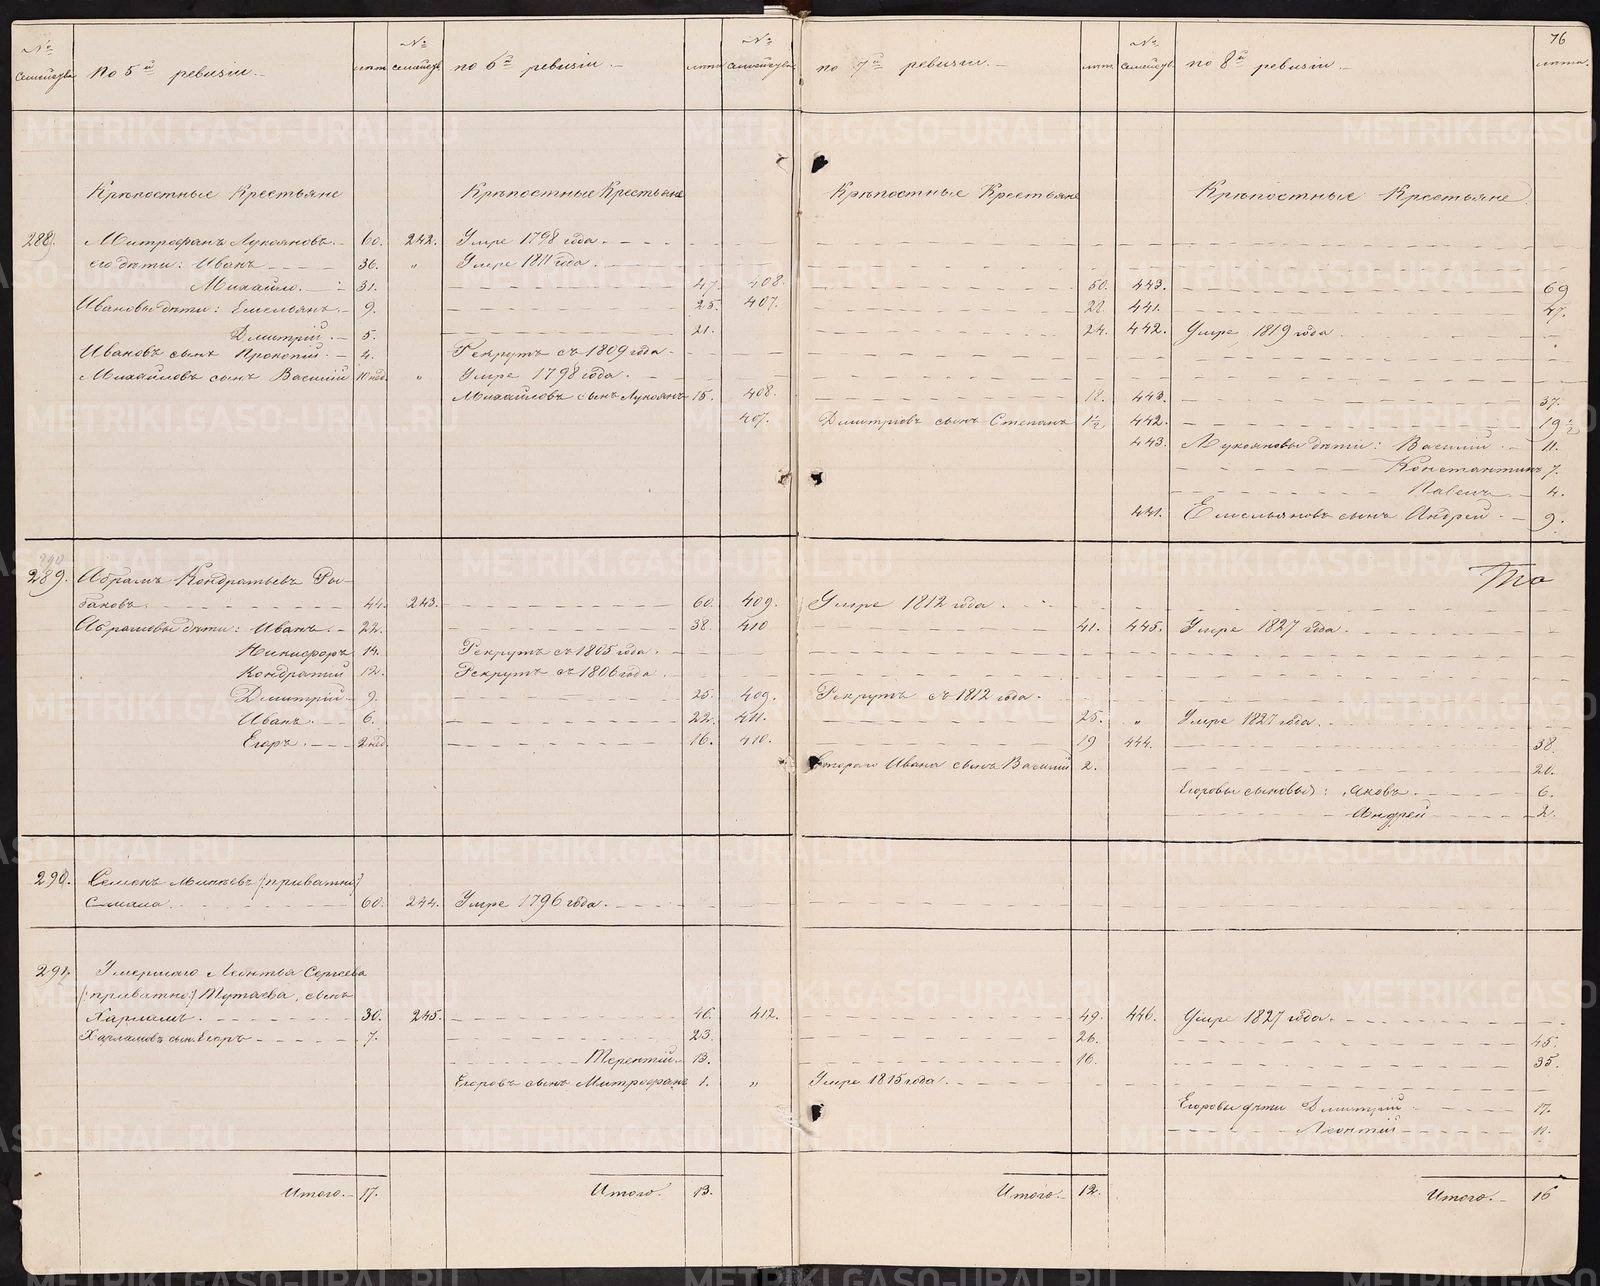 76
№ семейства По 5й ревизіи. лѣта № семейств. по 6й ревизіи. лѣта № семейства по 7й ревизіи. лѣта № семейств. по 8й ревизіи. лѣта.
Крѣпостные Крестьяне Крѣпостные Крестьяне Крѣпостные Крестьяне Крѣпостные Крестьяне
288. Митрофанъ Лукояновъ 60. 242. Умре 1798 года.
его дѣти: Иванъ 36. " Умре 1811 года.
Михайло. 31. 47. 408. 50. 443. 69
Ивановы дѣти: Емельянъ. 9. 25. 407. 28. 441. 47.
Дмитрій. 5. 21. 24. 442. Умре 1819 года
Ивановъ сынъ Прокопій. 4. Рекрутъ съ 1809 года.
Михайловъ сынъ Василій 10 нед. " Умре 1798 года.
Михайловъ сынъ Лукоянъ 15. 408. 18. 443. 37.
407. Дмитріевъ сынъ Степанъ 1½ 442. 19½
443. Лукояновы дѣти: Василій 11.
Константинъ 7.
Павелъ 4.
441. Емельяновъ сынъ Андрей 9.
То
289. Абрамъ Кондратьевъ
44. 243. 60. 409. Умре 1812 года.
Абрамовы дѣти: Иванъ. 22. 38. 410 41. 445. Умре 1827 года.
Никифоръ 14. Рекрутъ съ 1805 года.
Кондратій 12. Рекрутъ съ 1806 года
Дмитрій 9. 25. 409. Рекрутъ съ 1812 года.
Иванъ. 6. 22. 411. 25. " Умре 1827 года.
Егоръ. 2 нед. 16. 410. 19 444. 38.
Втораго Ивана сынъ Василій 2. 20.
Егоровы сыновья: Яковъ. 6.
Андрей 2.
290. Семенъ (:приватно:)
60. 244. Умре 1796 года.
291. Умершаго Леонтья Сергеева
(:приватно:) Тутаева, сынъ
Харламъ. 30. 245. 46. 412. 49. 446. Умре 1827 года.
Харламовъ сынъ Егоръ 7. 23. 26. 45.
Терентій 13. 16. 35.
Егоровъ сынъ Митрофанъ 1. " Умре 1815 года.
Егоровы дѣти Дмитрій 17.
Леонтій 11.
Итого. 17. Итого. 13. Итого. 12. Итого. 16
METRIKI.GASO-URAL.RU